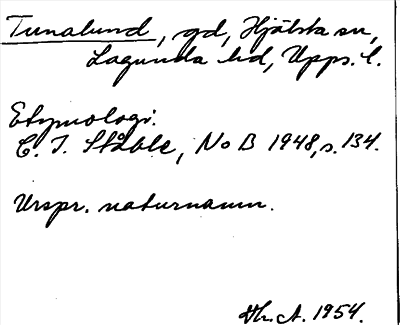 Tunalund, gd, Hjälsta sn,
Lagunda hd, Upps. l.
Etymologi:
C. I. Ståhle, NoB 1948, s. 134.
Urspr. naturnamn.
Th. A. 1954.